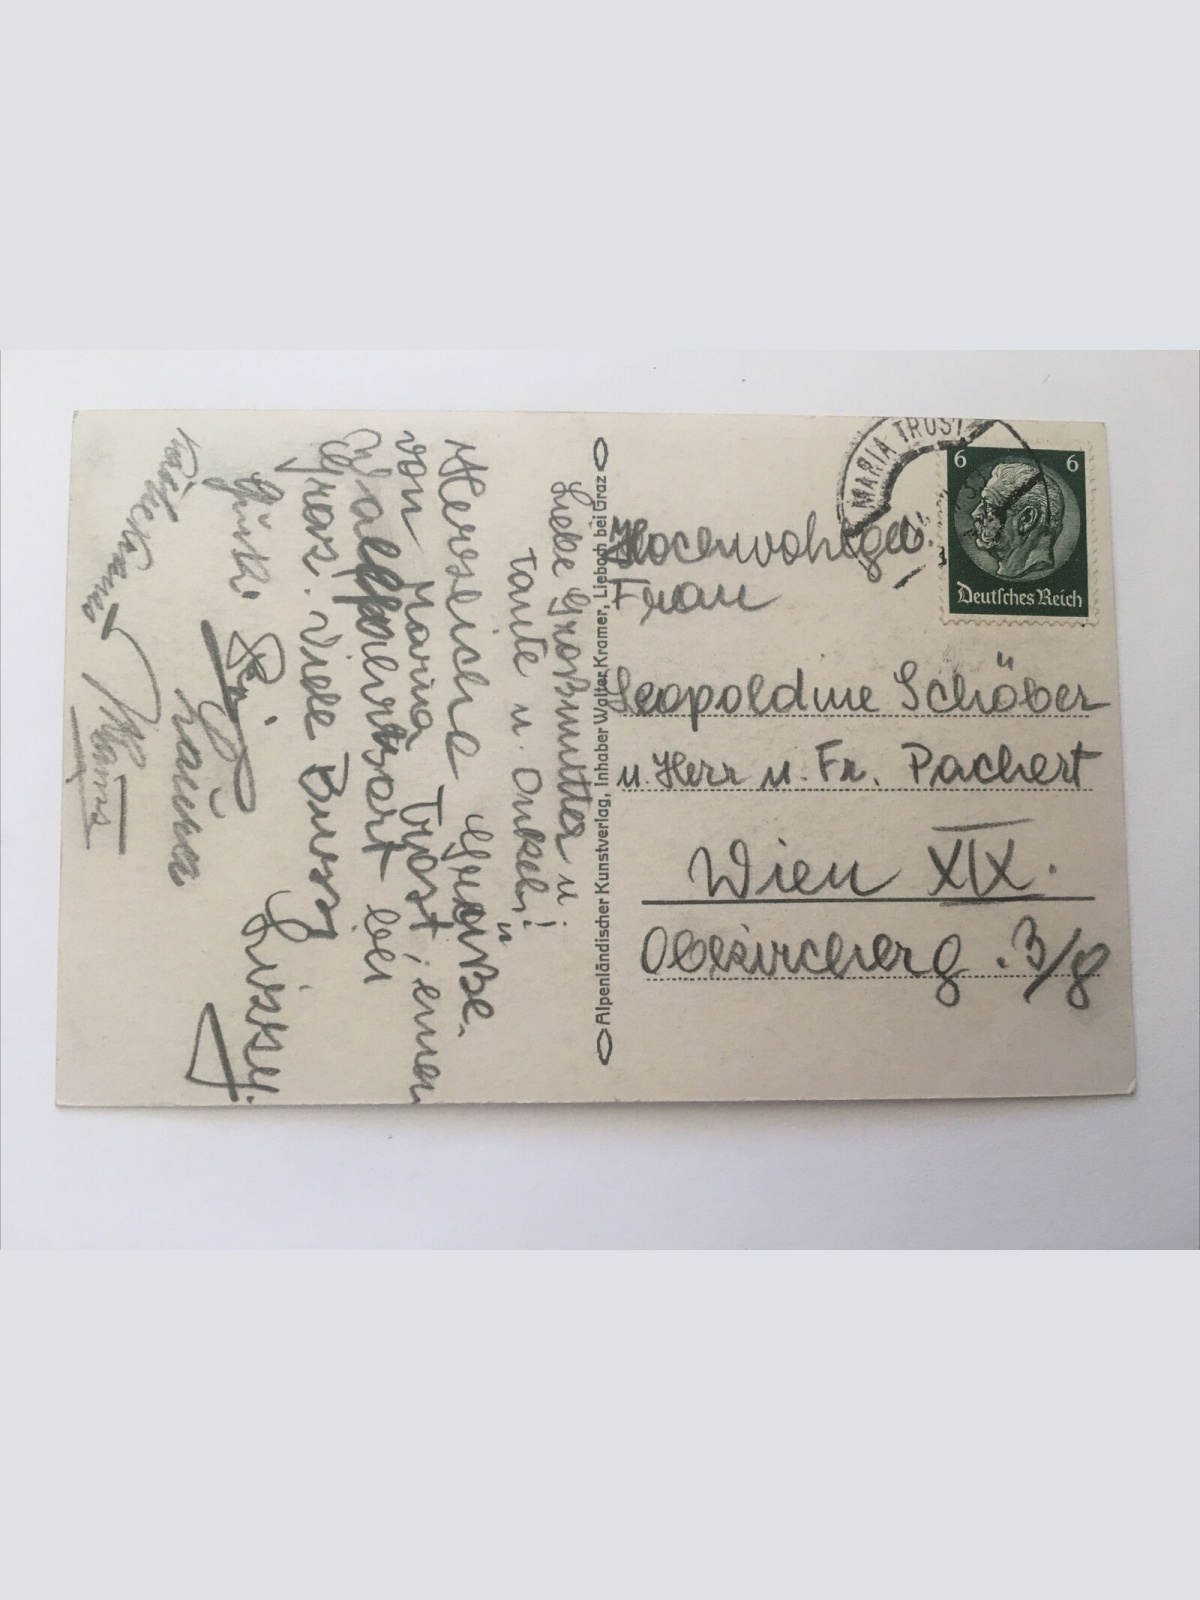 Liebe Großmutter u.
Tante u. Onkel!
Herzliche Grüße
von Maria Trost, einen
Wallfahrtsort bei
Graz. Viele Bussy
Lissy.
Hans
Alpenländischer Kunstverlag, Inhaber Walter Kramer, Lieboch bei Graz
MARIA TROST
6 6
Deutsches Reich
Hochwohlgeb.
Frau
Leopoldine Schöber
u. Herr u. Fr. Pachert
Wien XIX.
Obkircherg. 3/8